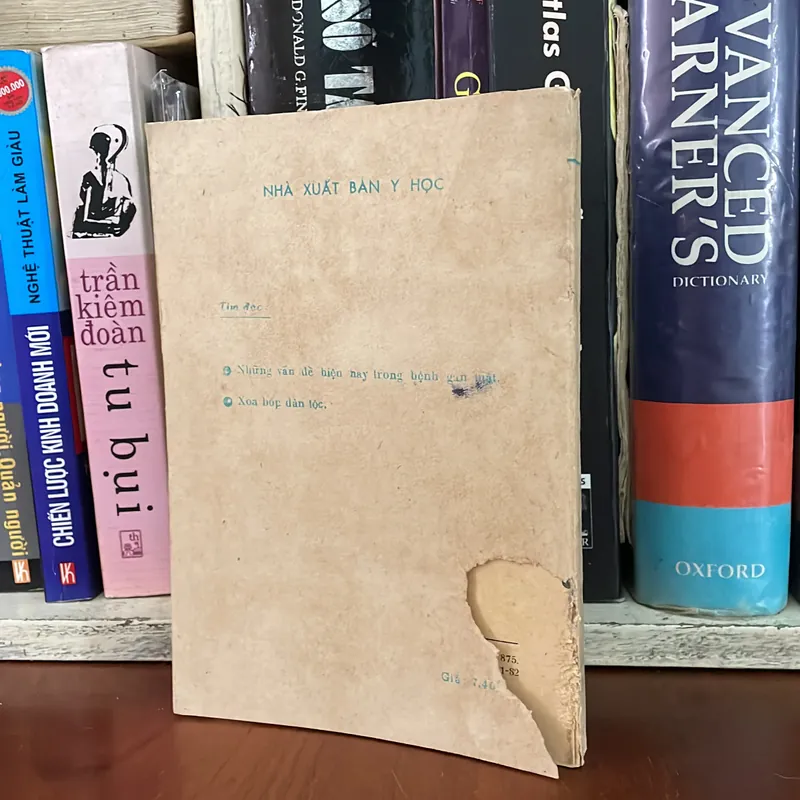 NHÀ XUẤT BẢN Y HỌC
Tìm đọc:
Những vấn đề hiện nay trong bệnh gan mật.
Xoa bóp dân tộc.
875.
1-82
Giá: 7,40
000.000
NGHỆ THUẬT LÀM GIÀU
CHIẾN LƯỢC KINH DOANH MỚI
người Quản người
trần
kiêm
đoàn
tu bụi
th
DONALD G.FIN
G
tlas G
VANCED
ARNER'S
DICTIONARY
OXFORD